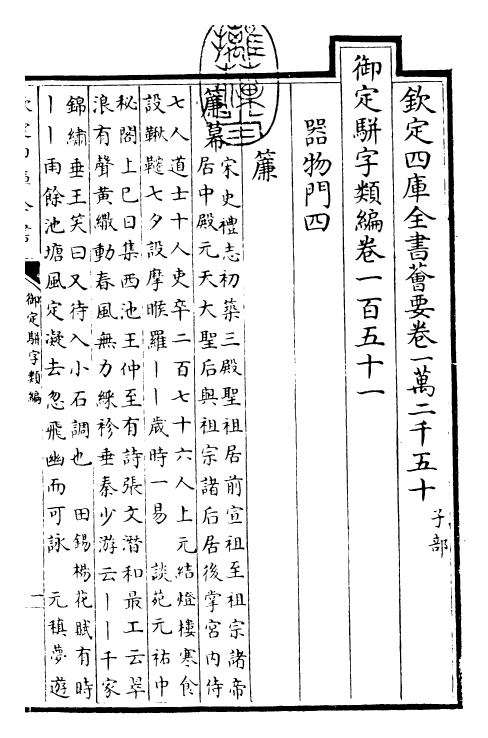 欽定四庫全書薈要卷一萬二千五十 子部
御定駢字類編卷一百五十一
器物門四
簾
簾幕 宋史禮志初築三殿聖祖居前宣祖至祖宗諸帝
居中殿元天大聖后與祖宗諸后居後掌宮内侍
七人道士十人吏卒二百七十六人上元結燈樓寒食
設鞦韆七夕設摩㬋羅丨丨歲時一易 談苑元祐中
秘閣上巳日集西池王仲至有詩張文潛和最工云翠
浪有聲黄繖動春風無力綵衫垂秦少游云丨丨千家
錦繡垂王笑曰又待入小石調也 田錫楊花賦有時
丨丨雨餘池塘風定凝去忽飛幽而可詠 元稹夢遊
御定駢字類編
一